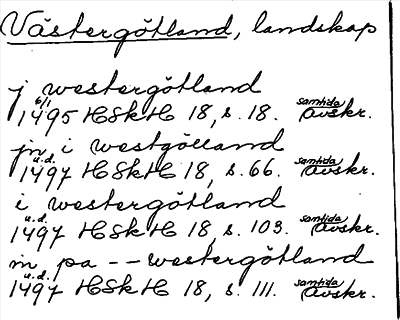 Västergötland, landskap
j westergötland
6/1 1495 HSkH 18, s. 18. samtida avskr.
jn i westgölland
u.d. 1497 HSkH 18, s. 66. samtida avskr.
i westergötland
u.d. 1497 HSkH 18, s. 103. samtida avskr.
in pa -- westergötland
u.d. 1497 HSkH 18, s. 111. samtida avskr.